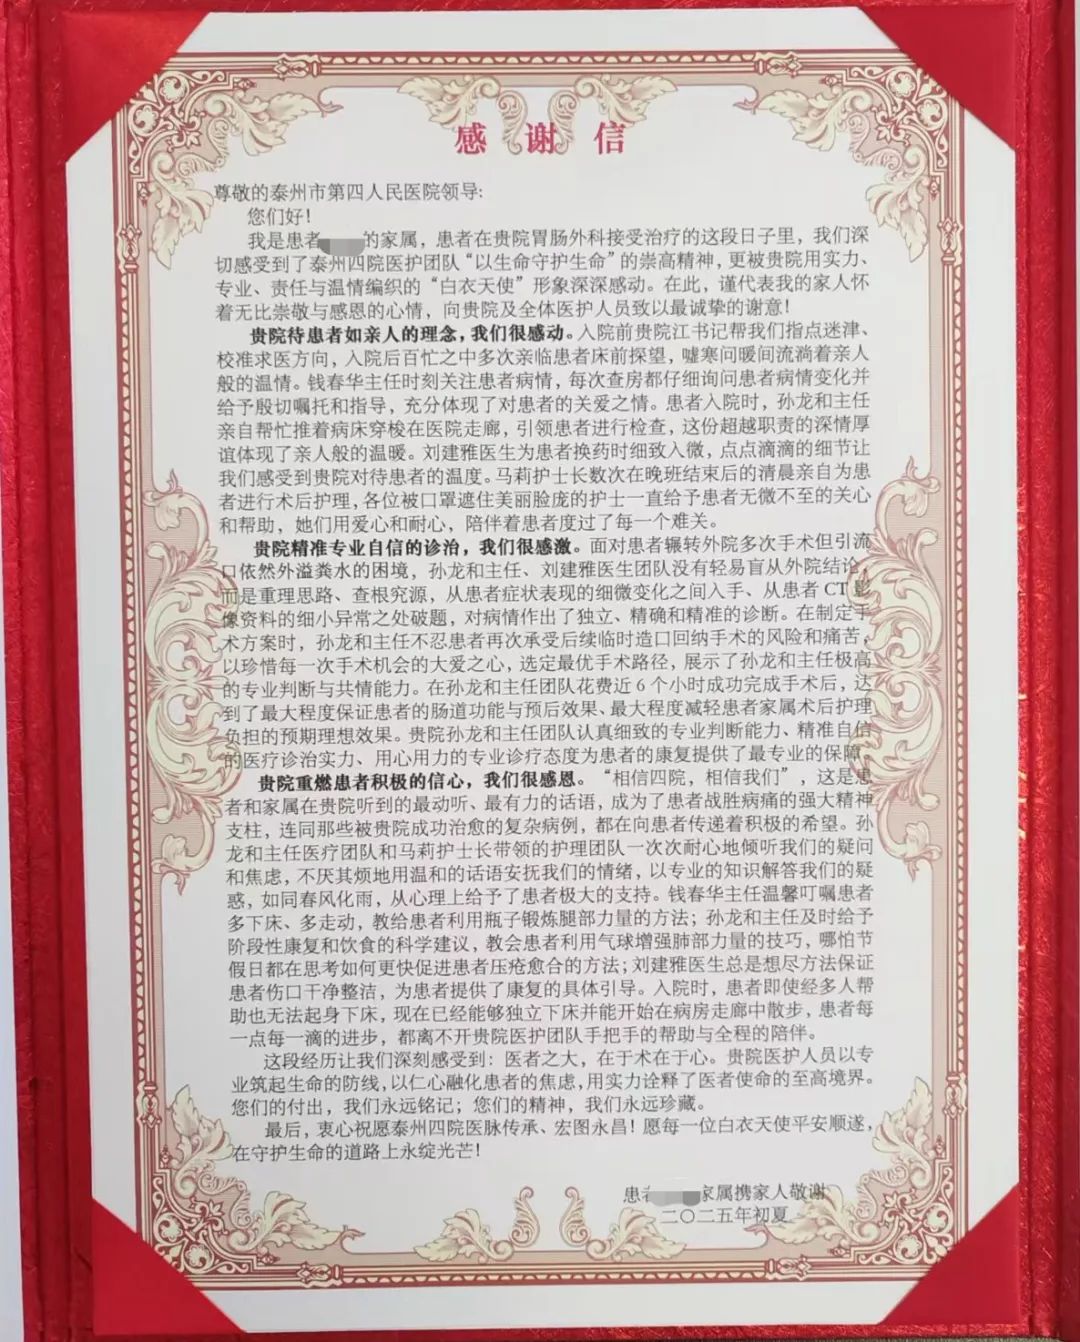 感谢信
尊敬的泰州市第四人民医院领导:
您们好！
我是患者 的家属，患者在贵院胃肠外科接受治疗的这段日子里，我们深
切感受到了泰州四院医护团队“以生命守护生命”的崇高精神，更被贵院用实力、
专业、责任与温情编织的“白衣天使”形象深深感动。在此，谨代表我的家人怀
着无比崇敬与感恩的心情，向贵院及全体医护人员致以最诚挚的谢意！
贵院待患者如亲人的理念，我们很感动。入院前贵院江书记帮我们指点迷津、
校准求医方向，入院后百忙之中多次亲临患者床前探望，嘘寒问暖间流淌着亲人
般的温情。钱春华主任时刻关注患者病情，每次查房都仔细询问患者病情变化并
给予殷切嘱托和指导，充分体现了对患者的关爱之情。患者入院时，孙龙和主任
亲自帮忙推着病床穿梭在医院走廊，引领患者进行检查，这份超越职责的深情厚
谊体现了亲人般的温暖。刘建雅医生为患者换药时细致入微，点点滴滴的细节让
我们感受到贵院对待患者的温度。马莉护士长数次在晚班结束后的清晨亲自为患
者进行术后护理，各位被口罩遮住美丽脸庞的护士一直给予患者无微不至的关心
和帮助，她们用爱心和耐心，陪伴着患者度过了每一个难关。
贵院精准专业自信的诊治，我们很感激。面对患者辗转外院多次手术但引流
口依然外溢粪水的困境，孙龙和主任、刘建雅医生团队没有轻易盲从外院结论，
而是重理思路、查根究源，从患者症状表现的细微变化之间入手、从患者 CT 影
像资料的细小异常之处破题，对病情作出了独立、精确和精准的诊断。在制定手
术方案时，孙龙和主任不忍患者再次承受后续临时造口回纳手术的风险和痛苦，
以珍惜每一次手术机会的大爱之心，选定最优手术路径，展示了孙龙和主任极高
的专业判断与共情能力。在孙龙和主任团队花费近 6 个小时成功完成手术后，达
到了最大程度保证患者的肠道功能与预后效果、最大程度减轻患者家属术后护理
负担的预期理想效果。贵院孙龙和主任团队认真细致的专业判断能力、精准自信
的医疗诊治实力、用心用力的专业诊疗态度为患者的康复提供了最专业的保障。
贵院重燃患者积极的信心，我们很感恩。“相信四院，相信我们”，这是患
者和家属在贵院听到的最动听、最有力的话语，成为了患者战胜病痛的强大精神
支柱，连同那些被贵院成功治愈的复杂病例，都在向患者传递着积极的希望。孙
龙和主任医疗团队和马莉护士长带领的护理团队一次次耐心地倾听我们的疑问
和焦虑，不厌其烦地用温和的话语安抚我们的情绪，以专业的知识解答我们的疑
惑，如同春风化雨，从心理上给予了患者极大的支持。钱春华主任温馨叮嘱患者
多下床、多走动，教给患者利用瓶子锻炼腿部力量的方法；孙龙和主任及时给予
阶段性康复和饮食的科学建议，教会患者利用气球增强肺部力量的技巧，哪怕节
假日都在思考如何更快促进患者压疮愈合的方法；刘建雅医生总是想尽方法保证
患者伤口干净整洁，为患者提供了康复的具体引导。入院时，患者即使经多人帮
助也无法起身下床，现在已经能够独立下床并能开始在病房走廊中散步，患者每
一点每一滴的进步，都离不开贵院医护团队手把手的帮助与全程的陪伴。
这段经历让我们深刻感受到：医者之大，在于术在于心。贵院医护人员以专
业筑起生命的防线，以仁心融化患者的焦虑，用实力诠释了医者使命的至高境界。
您们的付出，我们永远铭记；您们的精神，我们永远珍藏。
最后，衷心祝愿泰州四院医脉传承、宏图永昌！愿每一位白衣天使平安顺遂，
在守护生命的道路上永绽光芒！
患者 家属携家人敬谢
二〇二五年初夏